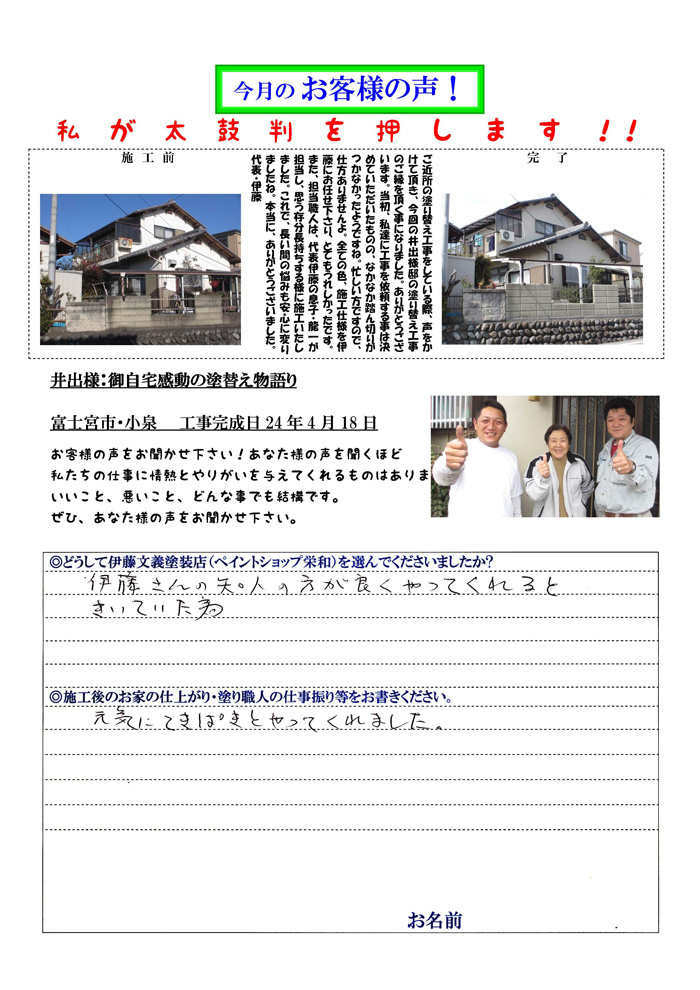 今月の お客様の声！
私が太鼓判を押します！！
施工前
完了
ご近所の塗り替え工事をしている際、声をか
けて頂き、今回の井出様邸の塗り替え工事
のご縁を頂く事になりました。ありがとうござ
います。当初、私達に工事を依頼する事は決
めていただいたものの、なかなか踏ん切りが
つかなかったようですね。忙しい方ですので、
仕方ありませんよ。全ての色、施工仕様を伊
藤にお任せ下さり、とてもうれしかったです。
また、担当職人は、代表伊藤の息子・龍一が
担当し、思う存分長持ちする様に施工いたし
ました。これで、長い間の悩みも安心に変り
ましたね。本当に、ありがとうございました。
代表・伊藤
井出様：御自宅感動の塗替え物語り
富士宮市・小泉 工事完成日24年4月18日
お客様の声をお聞かせ下さい！あなた様の声を聞くほど
私たちの仕事に情熱とやりがいを与えてくれるものはありま
いいこと、悪いこと、どんな事でも結構です。
ぜひ、あなた様の声をお聞かせ下さい。
◎どうして伊藤文義塗装店（ペイントショップ栄和）を選んでくださいましたか？
伊藤さんの知人の方が良くやってくれると
きいていた為
◎施工後のお家の仕上がり・塗り職人の仕事振り等をお書きください。
元気にてきぱきとやってくれました。
お名前